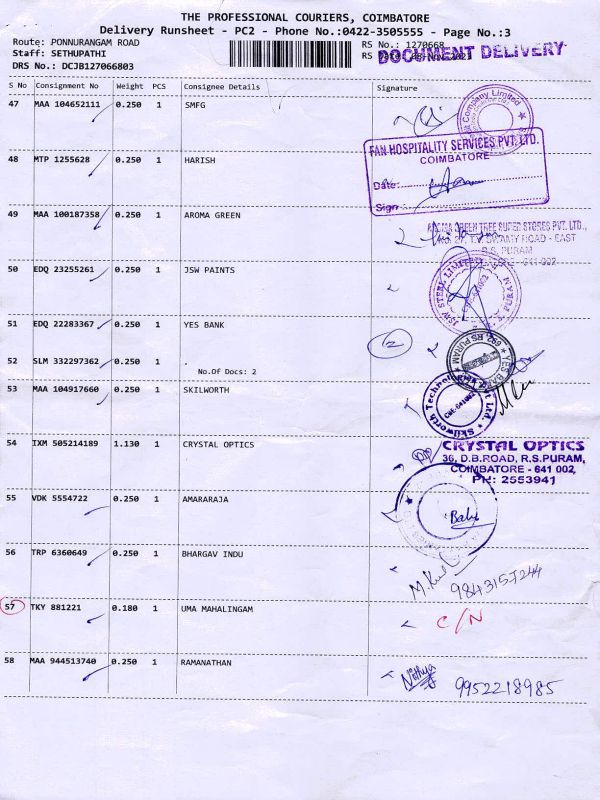 THE PROFESSIONAL COURIERS, COIMBATORE
Delivery Runsheet - PC2 - Phone No.:0422-3505555 - Page No.:3
Route: PONNURANGAM ROAD
Staff: SETHUPATHI
DRS No.: DCJB127066803
RS No.: 1270668
DOCUMENT DELIVERY
S No Consignment No Weight PCS Consignee Details Signature
47 MAA 104652111 0.250 1 SMFG
Company Limited
48 MTP 1255628 0.250 1 HARISH
FAN HOSPITALITY SERVICES PVT. LTD.
COIMBATORE
Date:
Sign:
49 MAA 100187358 0.250 1 AROMA GREEN
GREEN TREE SUPER STORES PVT. LTD.,
SWAMY ROAD - EAST
R.S. PURAM
641 002
50 EDQ 23255261 0.250 1 JSW PAINTS
JSW STEEL LIMITED
51 EDQ 22283367 0.250 1 YES BANK
2
YES BANK
RS PURAM
52 SLM 332297362 0.250 1
No.Of Docs: 2
53 MAA 104917660 0.250 1 SKILWORTH
Skilworth Technologies
54 IXM 505214189 1.130 1 CRYSTAL OPTICS
CRYSTAL OPTICS
36, D.B.ROAD, R.S.PURAM,
COIMBATORE - 641 002,
PH: 2553941
55 VDK 5554722 0.250 1 AMARARAJA
Babu
56 TRP 6360649 0.250 1 BHARGAV INDU
57 TKY 881221 0.180 1 UMA MAHALINGAM
C/N
58 MAA 944513740 0.250 1 RAMANATHAN
Nithya
9952218985